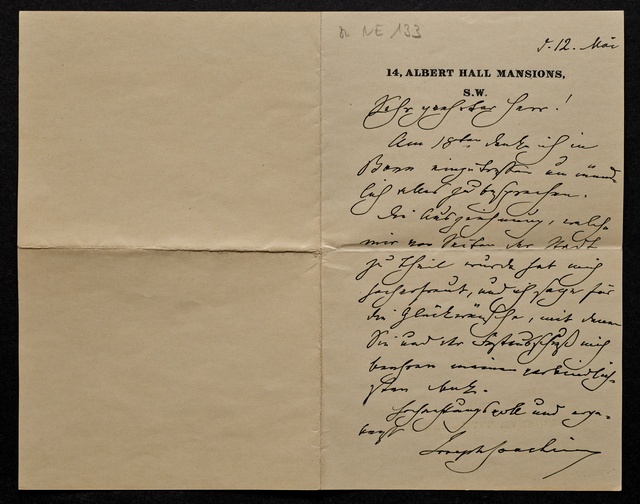 NE 133
d. 12. Mai
14, ALBERT HALL MANSIONS,
S.W.
Sehr geehrter Herr!
Am 18ten denke ich in
Bonn einzutreffen um münd-
lich alles zu besprechen.
Die Auszeichnung, welche
mir von Seiten der Stadt
zu Theil wurde hat mich
hocherfreut, und ich sage für
die Glückwünsche, mit denen
Sie und Ihr Festausschuß mich
beehren meinen verbindlich-
sten Dank.
Hochachtungsvoll und erge-
benst
Joseph Joachim